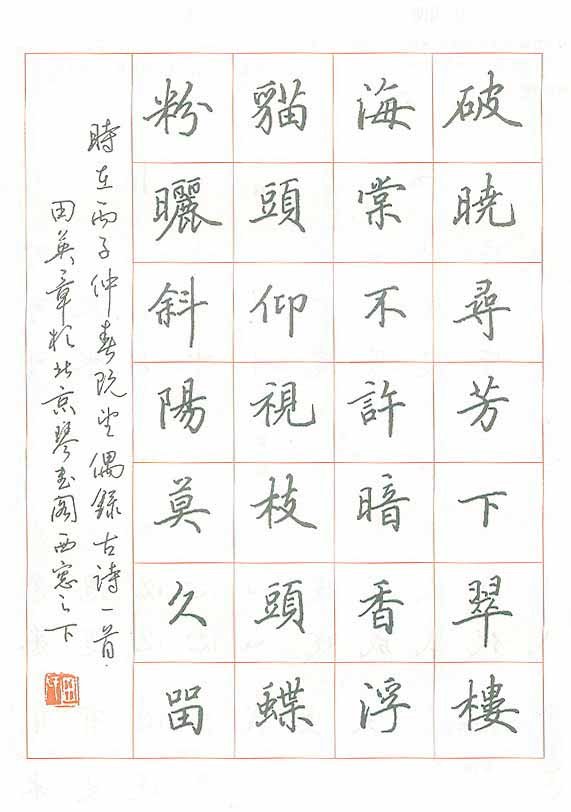 破曉尋芳下翠樓
海棠不許暗香浮
貓頭仰視枝頭蝶
粉曬斜陽莫久畱
時在丙子仲春既望偶錄古詩一首
田英章於北京琴書閣西窓之下